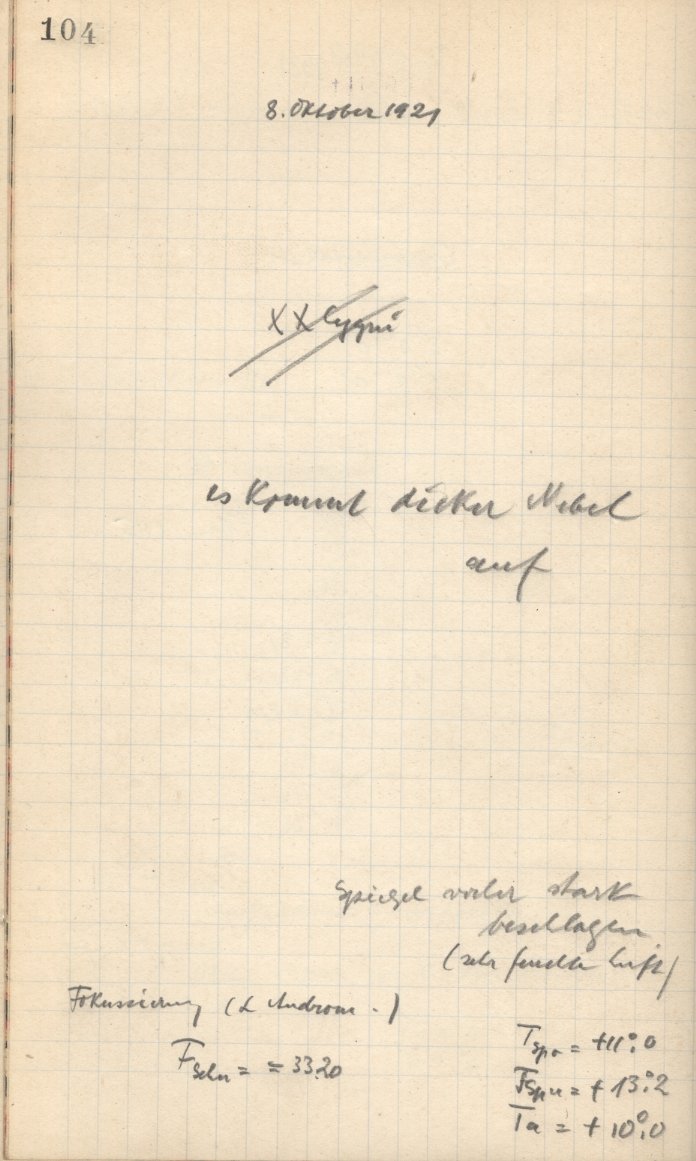 104
8. Oktober 1921
XX Cygni
es kommt dicker Nebel
auf
Spiegel vorher stark
beschlagen
(sehr feuchte Luft)
Fokussierung (α Androm.)
F = = 33.20
T = +11°.0
= + 13°.2
Ta = + 10°.0